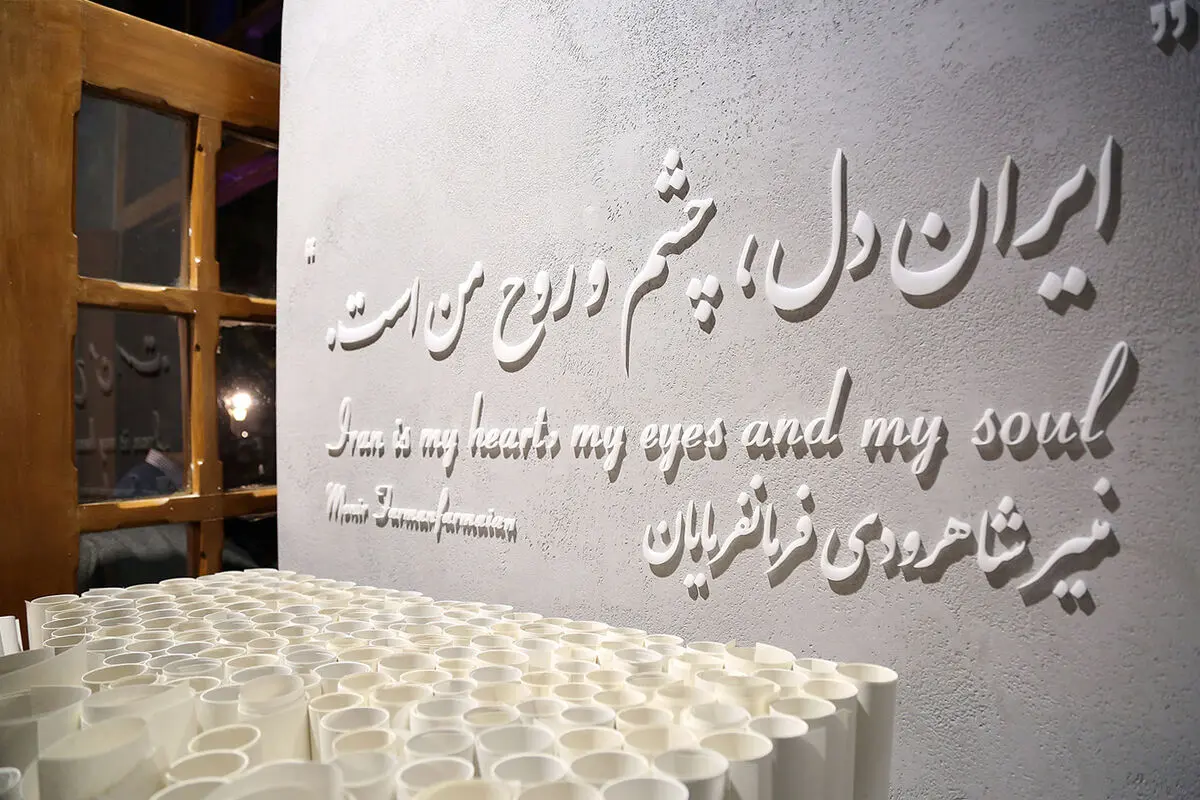 ”
ایران دل، چشم و روح من است.
“
Iran is my heart, my eyes and my soul
Monir Farmanfarmaian
منیر شاهرودی فرمانفرمایان